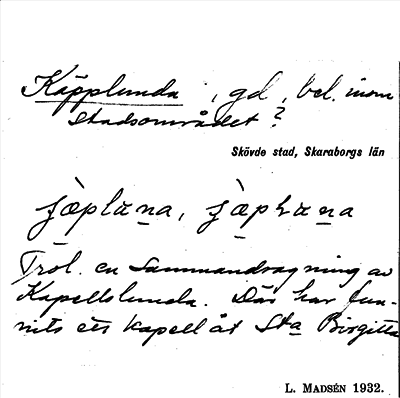 Käpplunda, gd, bel. inom
stadsområdet?
Skövde stad, Skaraborgs län
Trol. en sammandragning av
Kapellslunda. Där har fun-
nits ett kapell åt Sta Birgitta
L. MADSÉN 1932.